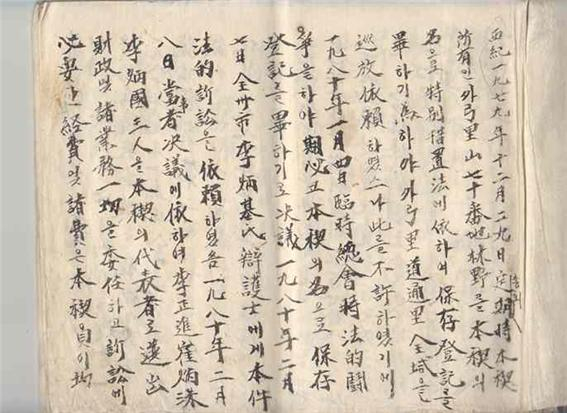 西紀一九七九年十二月二九日 定期總會時 本稧
所有인 外弓里 山七十番地 林野를 本稧의
名으로 特別措置法에 依하여 保存登記를
畢하기 爲하야 外弓里 道通里 全域을
巡放依賴하였으나 此를 不許하였기에
一九八十年 一月 四日 臨時總會時 法的鬪
爭을 하야 期必고 本稧의 名으로 保存
登記를 畢하기로 決議 一九八十年 二月
七日 全州市 李炳基氏 辯護士에게 本件
法的 訴訟을 依賴하였음 一九八十年 二月
八日 當事者 決議에 依하여 李正進 崔炳洙
李炳國 三人을 本稧의 代表者로 選出
財政및 諸業務 一切을 委任하고 訴訟에
必要한 經費및 諸費은 本稧員이